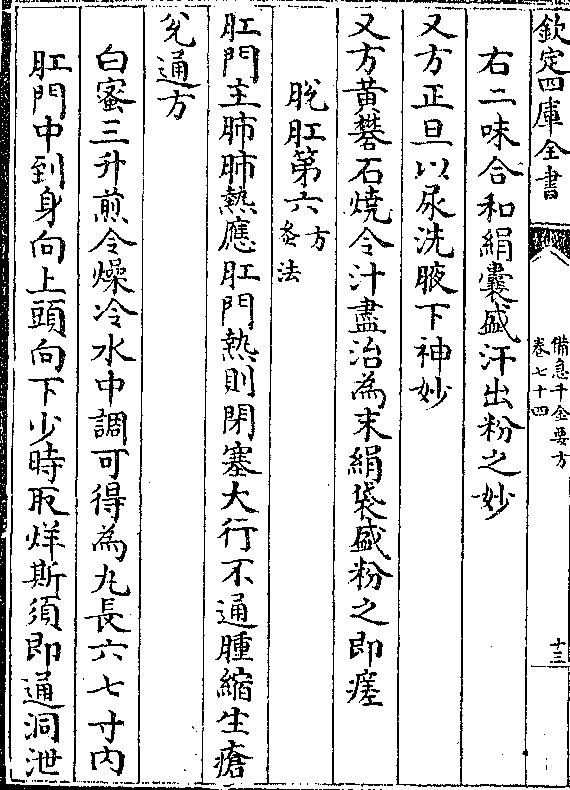 欽定四庫全書
備急千金要方
卷七十四
十三
右二味合和絹囊盛汗出粉之妙
又方正旦以尿洗腋下神妙
又方黃礬石燒令汁盡治為末絹袋盛粉之即瘥
脫肛第六方
灸法
肛門主肺肺熱應肛門熱則閉塞大行不通腫縮生瘡
兌通方
白蜜三升煎令燥冷水中調可得為丸長六七寸內
肛門中到身向上頭向下少時取烊斯須即通洞泄